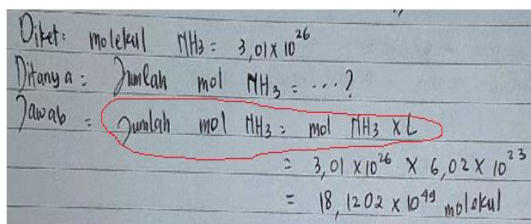 Diket: molekul NH3 = 3,01 x 10²⁶
Ditanya = Jumlah mol NH3 = ...?
Jawab = Jumlah mol NH3 = mol NH3 x L
= 3,01 x 10²⁶ x 6,02 x 10²³
= 18,1202 x 10⁴⁹ molekul